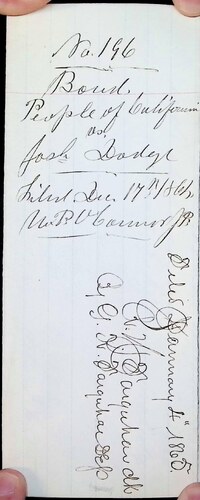 No. 196
Bond
People of California
vs
Josh Dodge
Filed Dec 17th 1864
M. P. O'Connor J.P.
Filed January 4th 1865
Farquhar clk
By G. K. Farquhar Depy